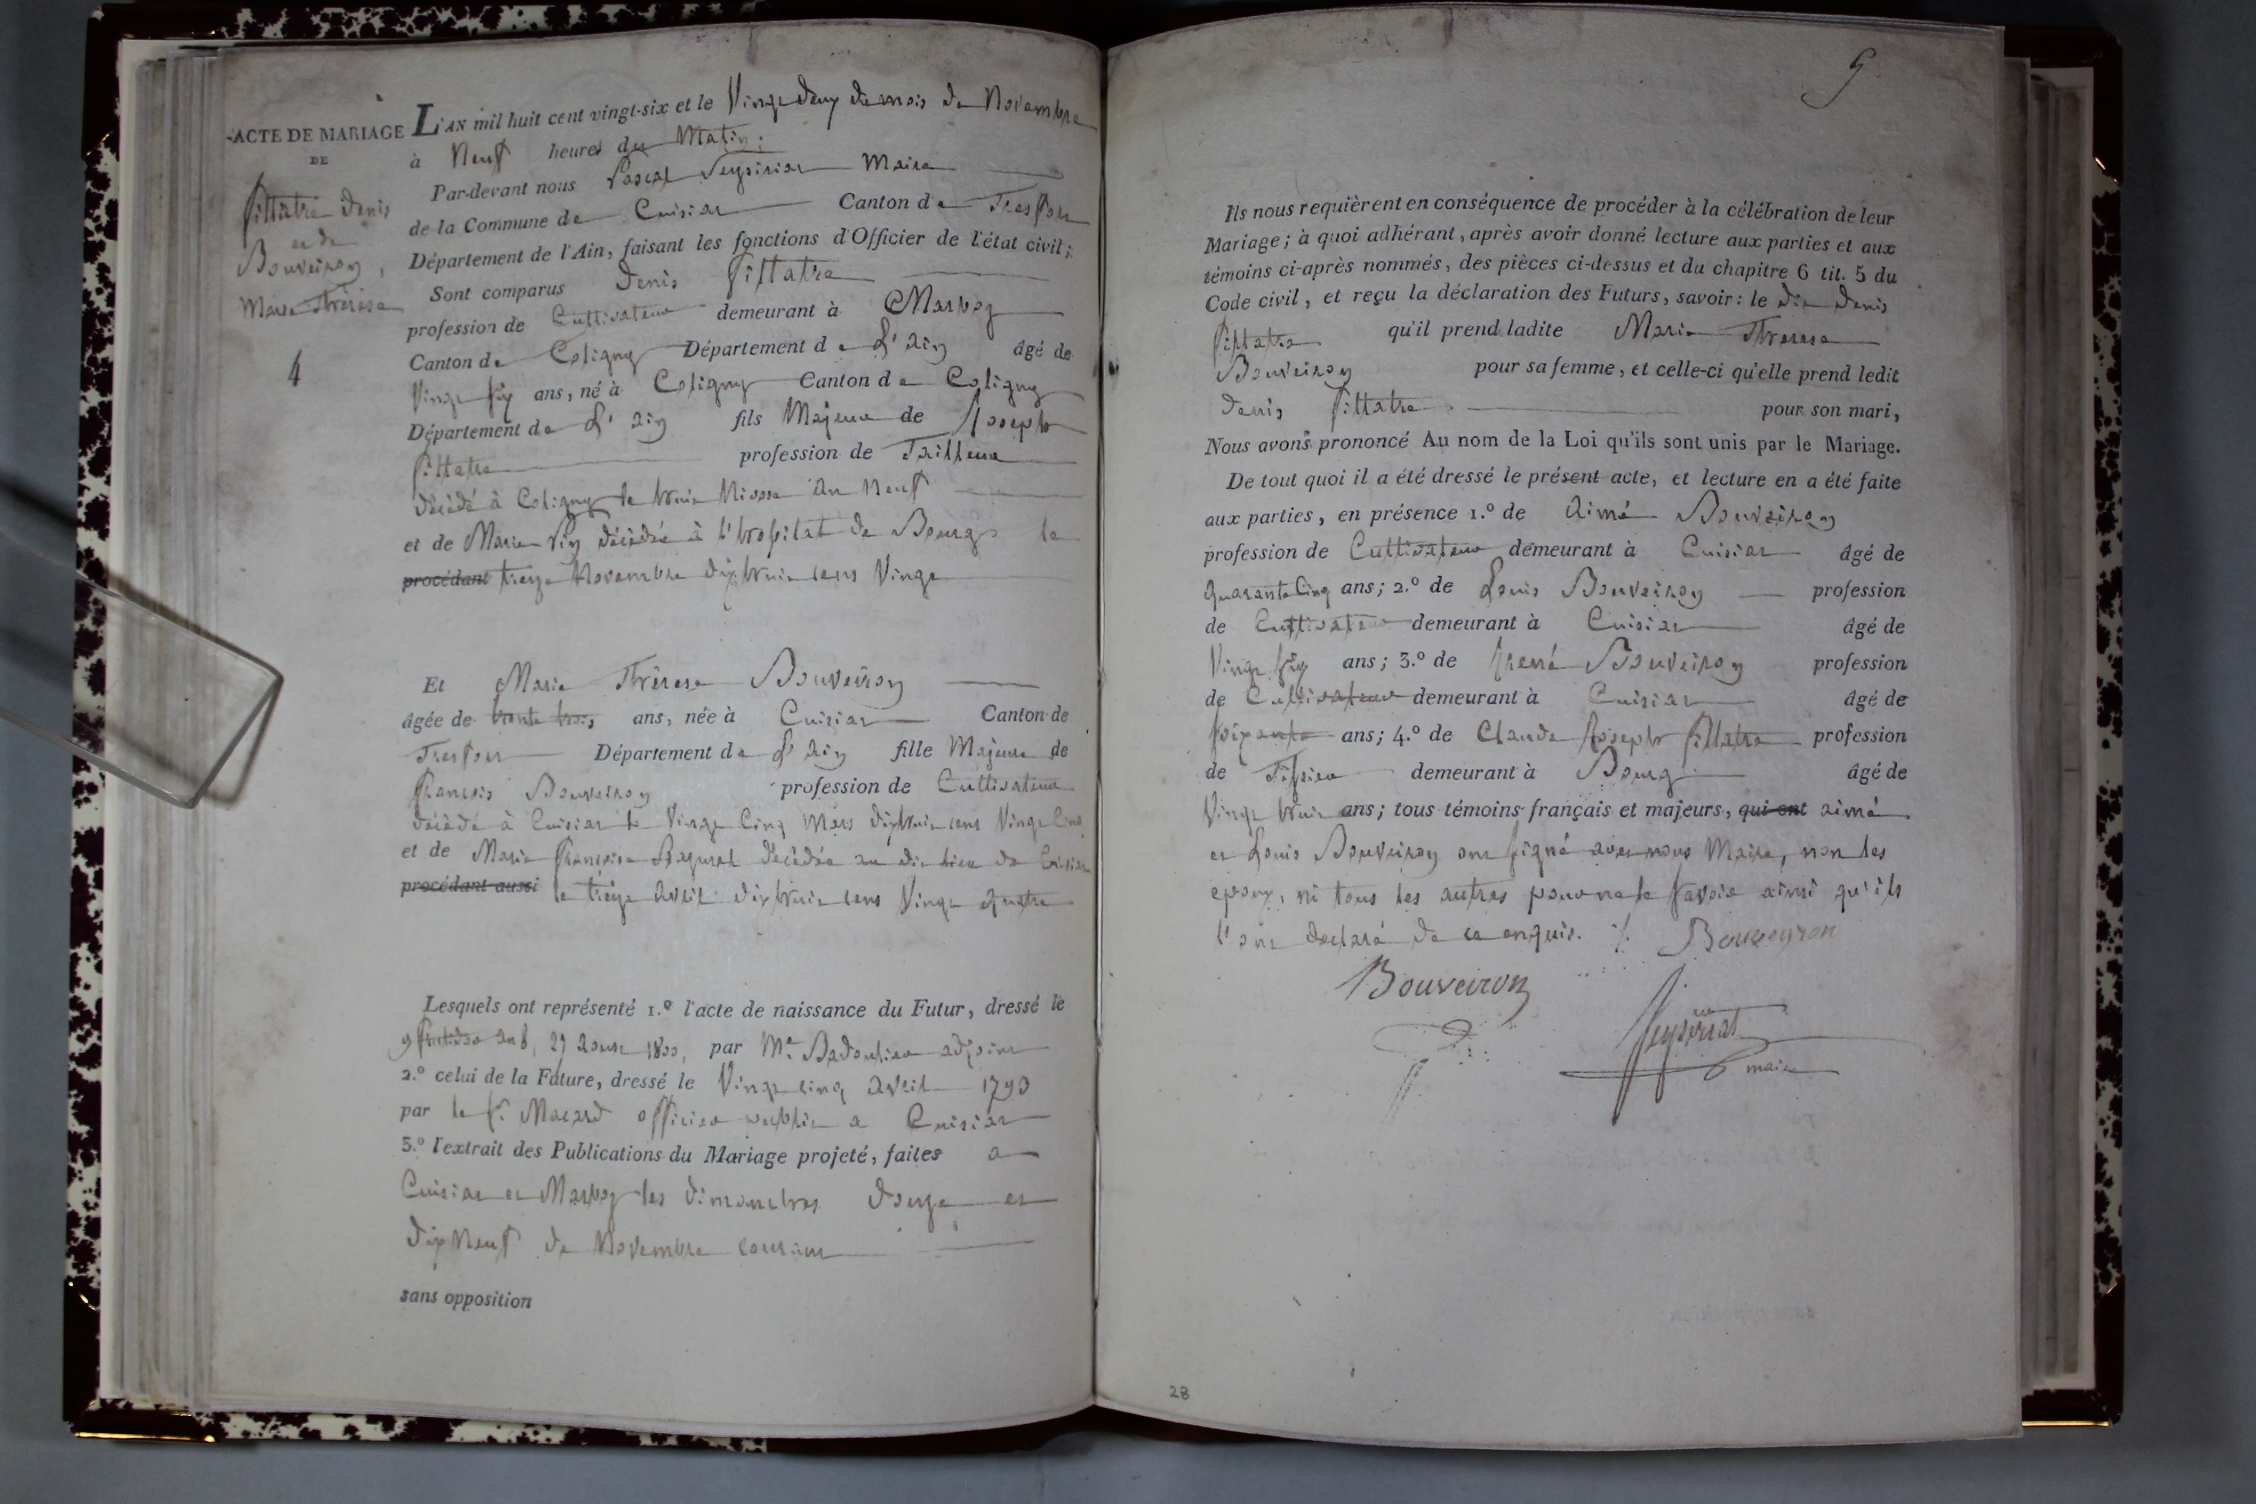 ACTE DE MARIAGE
DE
Pillatre Denis
et de
Bouveiron,
Marie Thérèse
4
L'AN mil huit cent vingt-six et le Vingt deux du mois de Novembre
à Neuf heures du Matin;
Par-devant nous Pascal Peysiriat Maire
de la Commune de Cuisiat Canton de Treffort
Département de l'Ain, faisant les fonctions d'Officier de l'état civil;
Sont comparus Denis Pillatre
profession de Cultivateur demeurant à Marboz
Canton de Coligny Département de L'ain âgé de
Vingt six ans, né à Coligny Canton de Coligny
Département de L'ain fils Majeur de Joseph
Pillatre profession de Tailleur
décédé à Coligny le huit Nivose an Neuf
et de Marie décédée à l'hopital de Bourg le
procédant treize Novembre dix huit cent Vingt
Et Marie Thérèse Bouveiron
âgée de trente trois ans, née à Cuisiat Canton de
Treffort Département de L'ain fille Majeure de
François Bouveiron profession de Cultivateur
décédé à Cuisiat le Vingt Cinq Mars dix huit cent Vingt Cinq
et de Marie Françoise décédée au dit lieu de Cuisiat
procédant aussi le treize avril dix huit cent Vingt quatre
Lesquels ont représenté 1.º l'acte de naissance du Futur, dressé le
9 fructidor an 8, 27 Aoust 1800, par Mr. adjoint
2.º celui de la Future, dressé le Vingt cinq avril 1793
par le Sr. Macard officier public a Cuisiat
3.º l'extrait des Publications du Mariage projeté, faites a
Cuisiat et Marboz les dimanches douze et
dix Neuf de Novembre courant
sans opposition
5
Ils nous requièrent en conséquence de procéder à la célébration de leur
Mariage; à quoi adhérant, après avoir donné lecture aux parties et aux
témoins ci-après nommés, des pièces ci-dessus et du chapitre 6 tit. 5 du
Code civil, et reçu la déclaration des Futurs, savoir: le dit Denis
Pillatre qu'il prend ladite Marie Therese
Bouveiron pour sa femme, et celle-ci qu'elle prend ledit
Denis Pillatre pour son mari,
Nous avons prononcé Au nom de la Loi qu'ils sont unis par le Mariage.
De tout quoi il a été dressé le présent acte, et lecture en a été faite
aux parties, en présence 1.º de Aimé Bouveiron
profession de Cultivateur demeurant à Cuisiat âgé de
quarante Cinq ans; 2.º de Louis Bouveiron profession
de Cultivateur demeurant à Cuisiat âgé de
Vingt six ans; 3.º de Bouveiron profession
de Cultivateur demeurant à Cuisiat âgé de
soixante ans; 4.º de Claude Joseph Pillatre profession
de Tissier demeurant à Bourg âgé de
Vingt huit ans; tous témoins français et majeurs, qui ont aimé
et Louis Bouveiron ont signé avec nous Maire, non les
epoux, ni tous les autres pour ne le savoir ainsi qu'ils
l'ont declaré de ce enquis. Bouveyron
Bouveiron
Peysiriat
maire
28